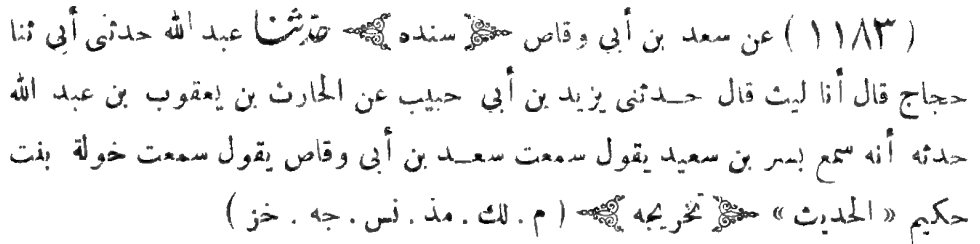 ( ١١٨٣ ) عن سعد بن أبي وقاص ﴿ سنده ﴾ حدثنا عبد الله حدثنى أبي ثنا
حجاج قال أنا ليث قال حدثنى يزيد بن أبي حبيب عن الحارث بن يعقوب بن عبد الله
حدثه أنه سمع بسر بن سعيد يقول سمعت سعد بن أبى وقاص يقول سمعت خولة بنت
حكيم « الحديث » ﴿ تخريجه ﴾ ( م . لك . مذ . نس . جه . خز )